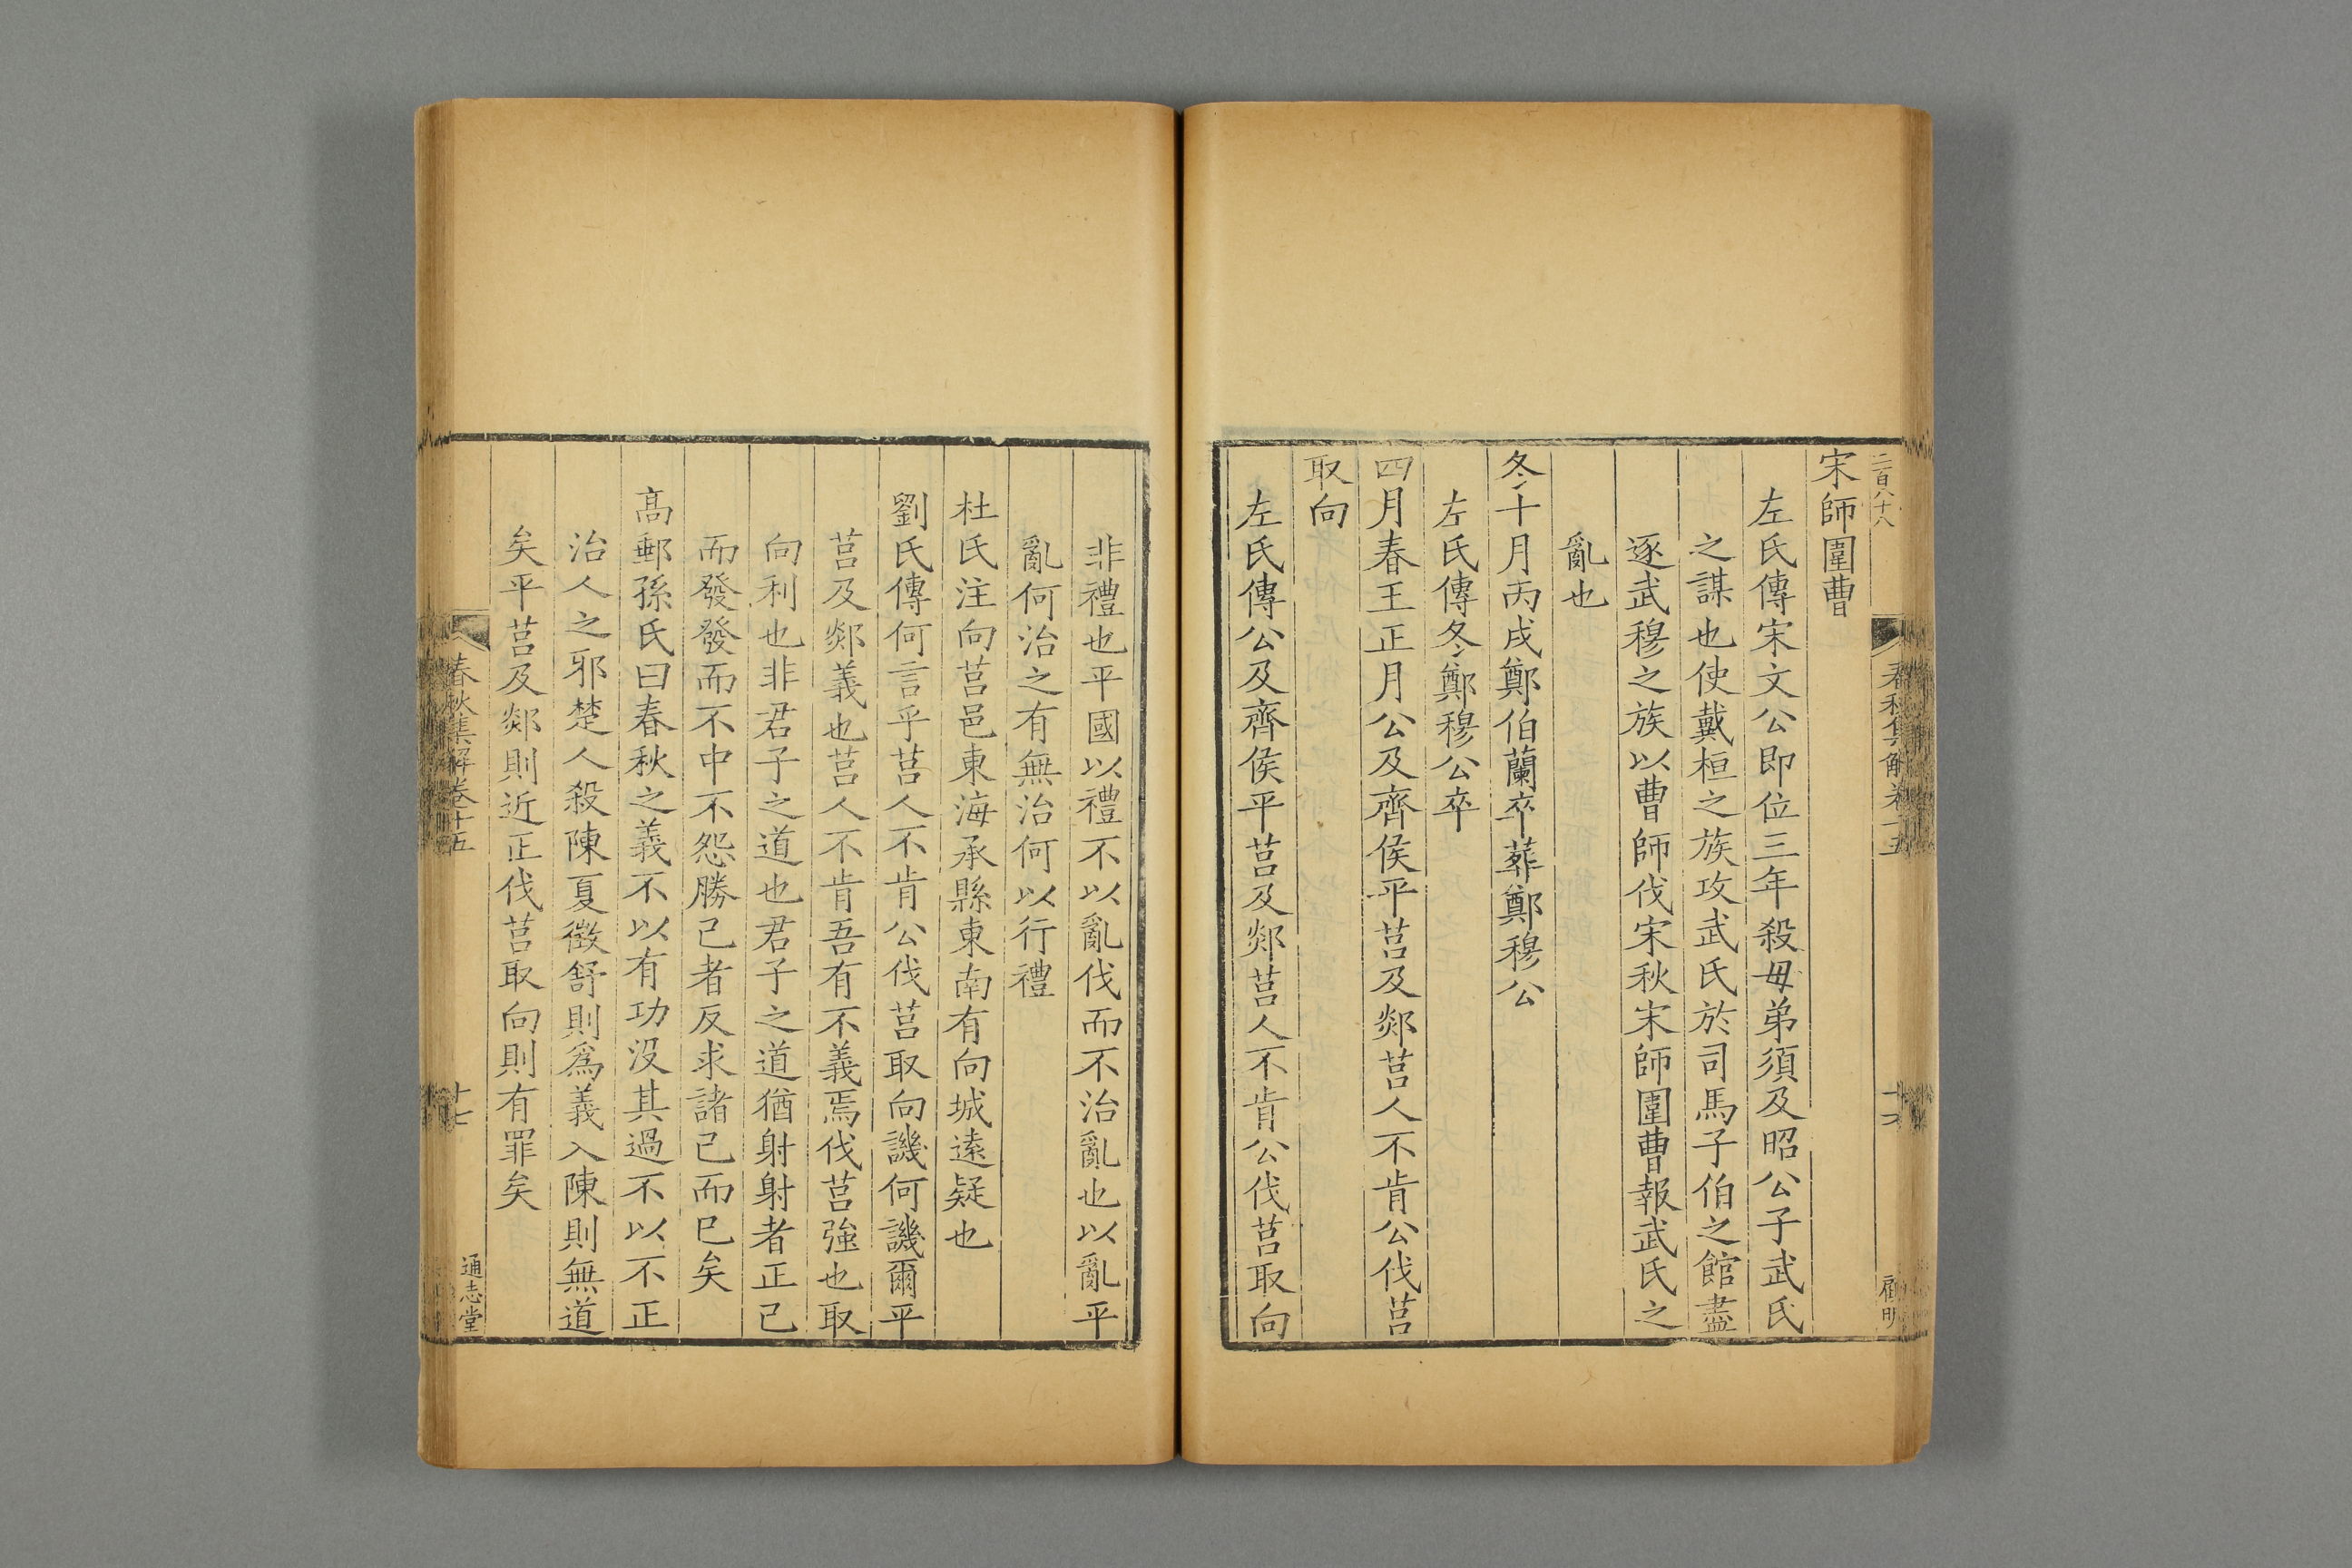 二百八十八
春秋集解卷十五
十六
顧明
宋師圍曹
左氏傳宋文公即位三年殺母弟須及昭公子武氏
之謀也使戴桓之族攻武氏於司馬子伯之館盡
逐武穆之族以曹師伐宋秋宋師圍曹報武氏之
亂也
冬十月丙戌鄭伯蘭卒葬鄭穆公
左氏傳冬鄭穆公卒
四月春王正月公及齊侯平莒及郯莒人不肯公伐莒
取向
左氏傳公及齊侯平莒及郯莒人不肯公伐莒取向
非禮也平國以禮不以亂伐而不治亂也以亂平
亂何治之有無治何以行禮
杜氏注向莒邑東海承縣東南有向城遠疑也
劉氏傳何言乎莒人不肯公伐莒取向譏何譏爾平
莒及郯義也莒人不肯吾有不義焉伐莒強也取
向利也非君子之道也君子之道猶射射者正己
而發發而不中不怨勝己者反求諸己而已矣
高郵孫氏曰春秋之義不以有功沒其過不以不正
治人之邪楚人殺陳夏徵舒則為義入陳則無道
矣平莒及郯則近正伐莒取向則有罪矣
春秋集解卷十五
十七
通志堂